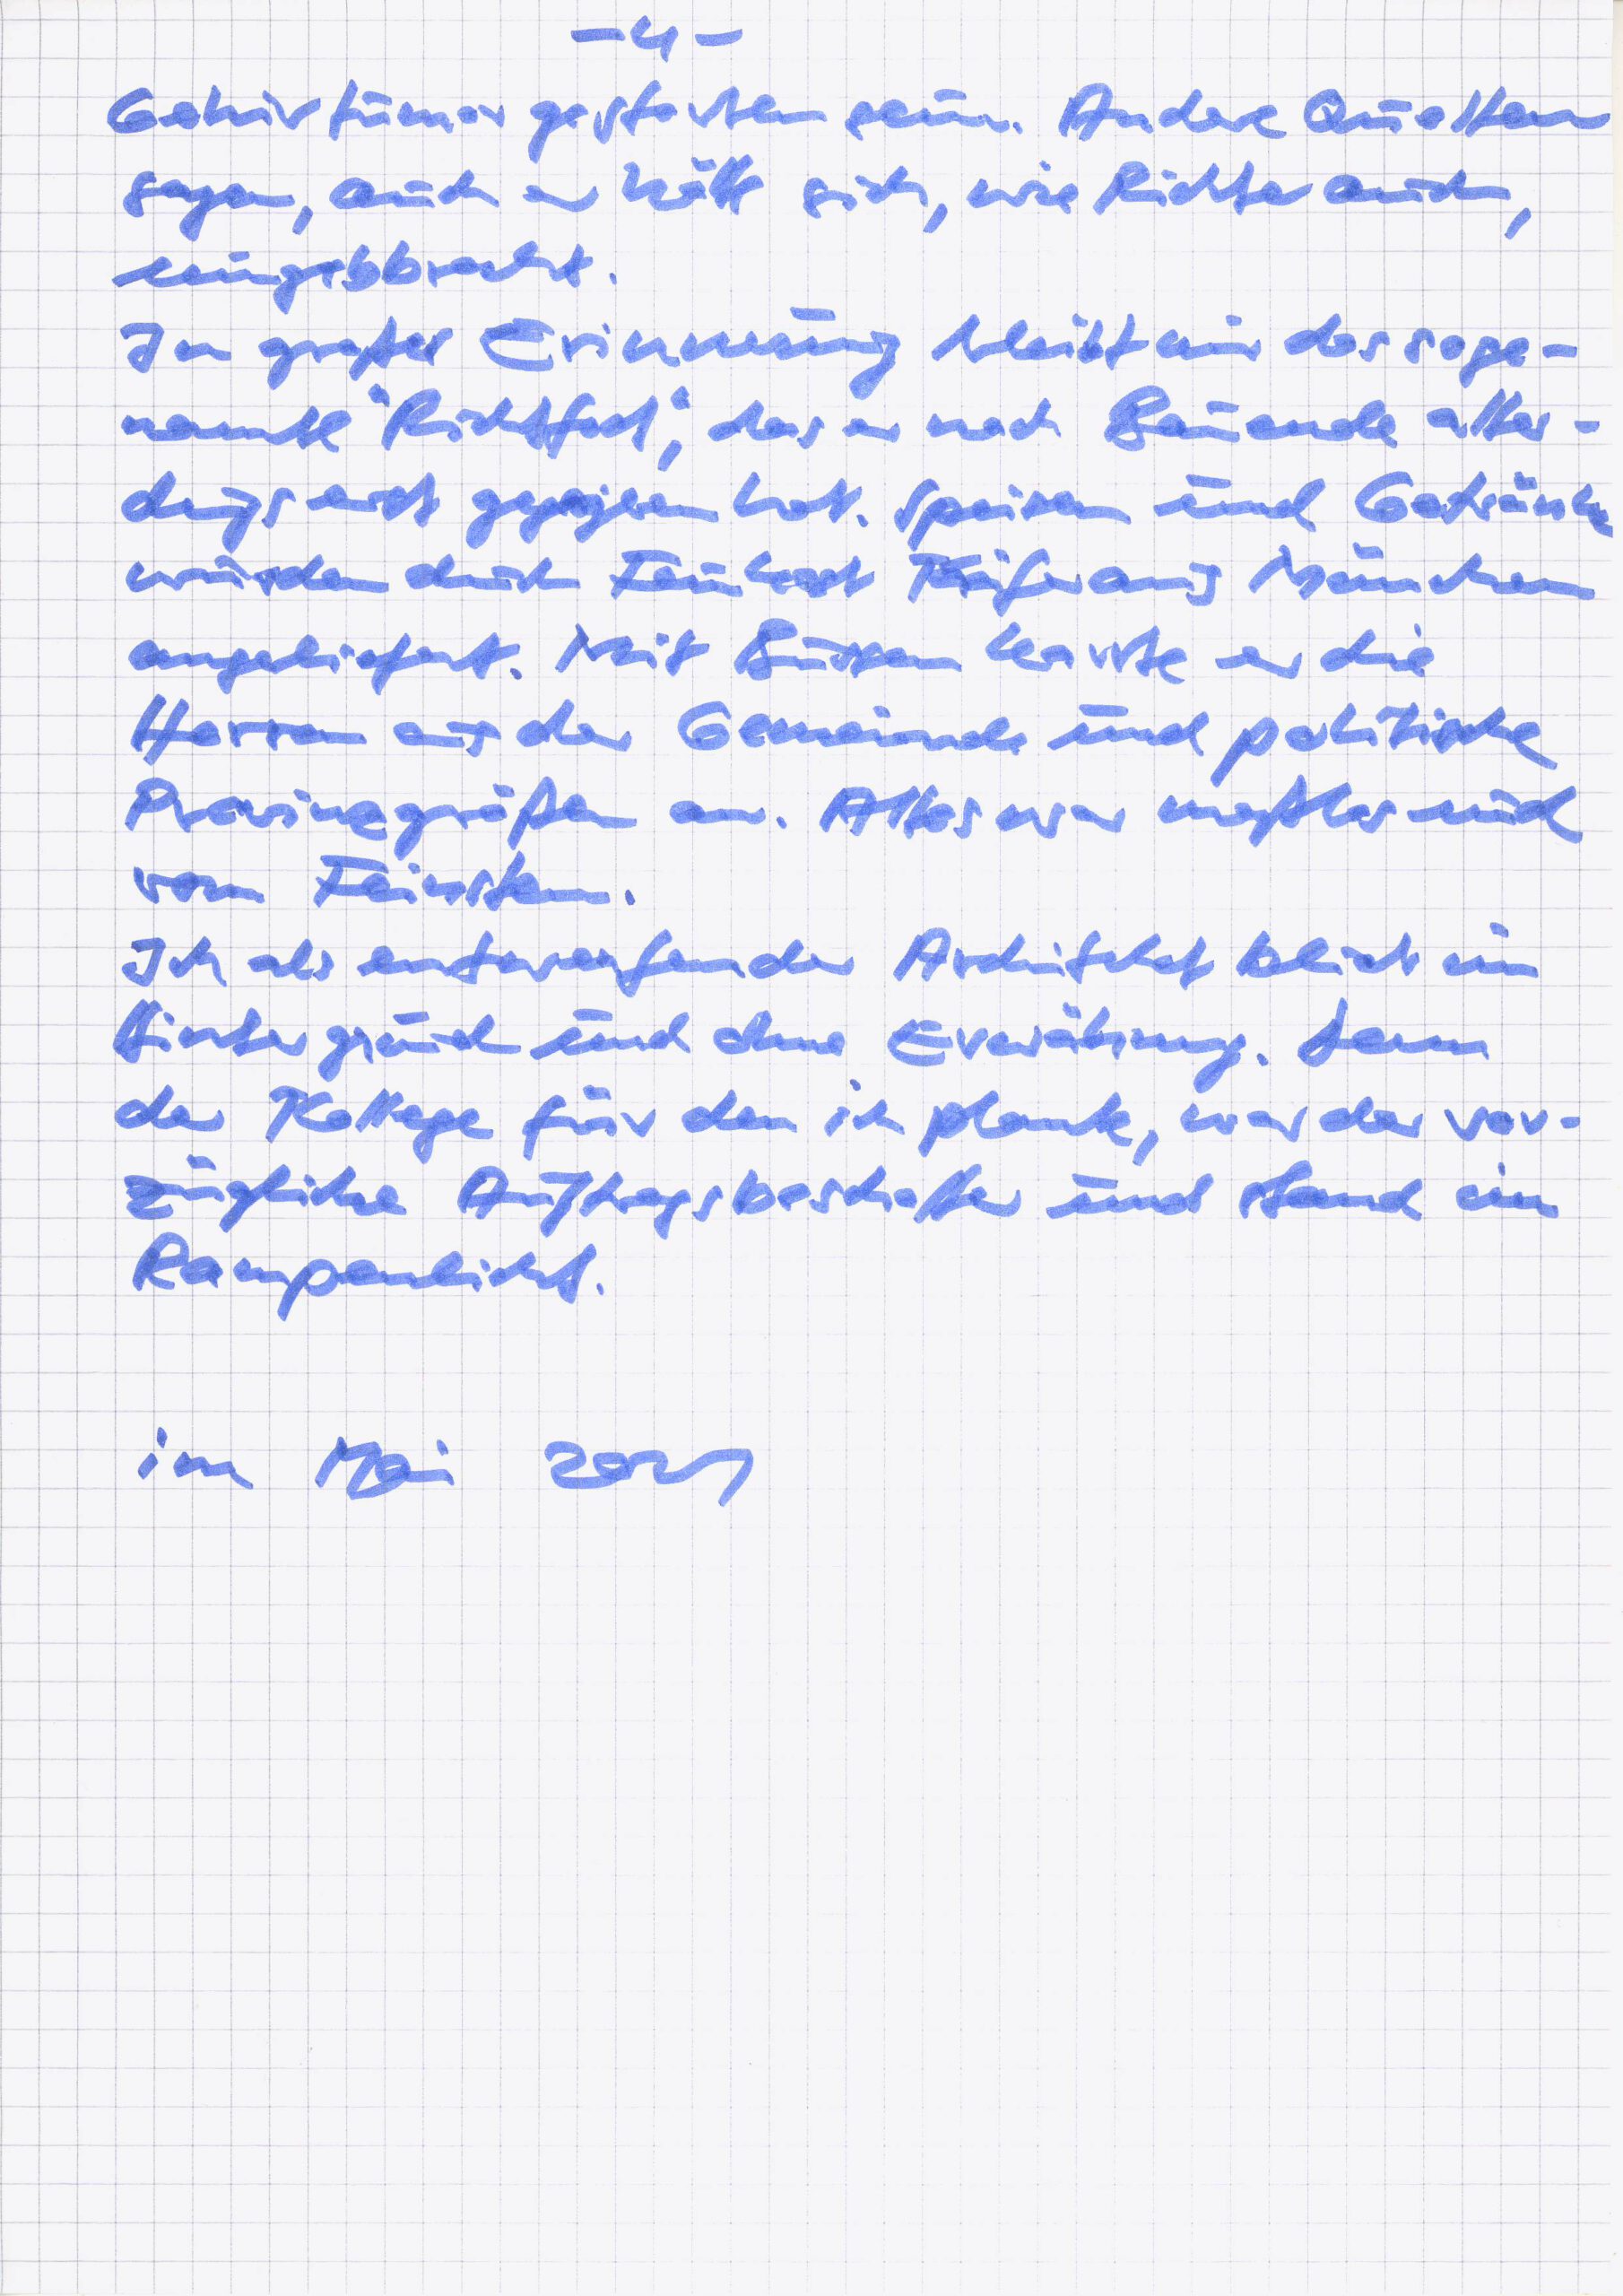 -4-
Gehirntumor gestorben sein. Andere Quellen
sagen, auch er hätte sich, wie Richter auch,
umgebbracht.
In großer Erinnerung bleibt mir das soge-
nannte "Richtfest", das er nach Bauende aller-
dings erst gegeben hat. Speisen und Getränke
wurden durch Feinkost Käfer aus München
angeliefert. Mit Bussen karrte er die
Herren aus der Gemeinde und politische
Provinzgrößen an. Alles war maßlos und
vom Feinsten.
Ich als entwerfender Architekt blieb im
Hintergrund und ohne Erwähnung. Denn
der Kollege für den ich plante, war der vor-
zügliche Auftragsbeschaffer und stand im
Rampenlicht.
im Mai 2021